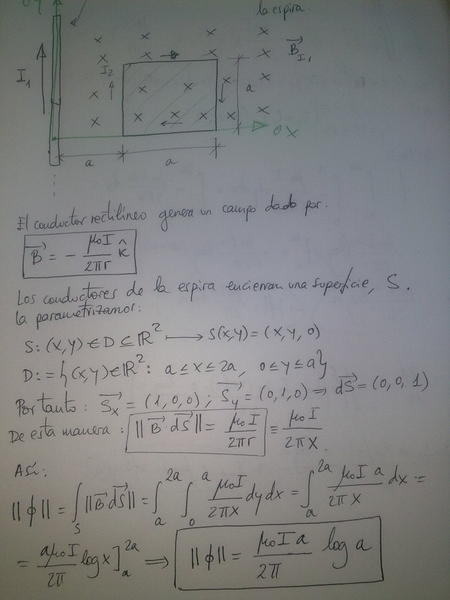 la espira.
I₁
I₂
B⃗_I₁
a
OX
a
a
El conductor rectilineo genera un campo dado por:
B⃗ = - μ₀I/2πr k̂
Los conductores de la espira encierran una superficie, S.
la parametrizamos:
S: (x,y) ∈ D ⊆ ℝ² ⟼ S(x,y) = (x, y, 0)
D := {(x,y) ∈ ℝ²: a ≤ x ≤ 2a, 0 ≤ y ≤ a}
Por tanto: S⃗x = (1,0,0) ; S⃗y = (0,1,0) ⇒ dS⃗ = (0,0,1)
De esta manera: ||B⃗ dS⃗|| = μ₀I/2πr ≡ μ₀I/2πx.
Así:
||φ|| = ∫_S ||B⃗ dS⃗|| = ∫_a^2a ∫_0^a μ₀I/2πx dy dx = ∫_a^2a μ₀I a/2πx dx =
= aμ₀I/2π log x]_a^2a ⟹ ||φ|| = μ₀I a/2π log a